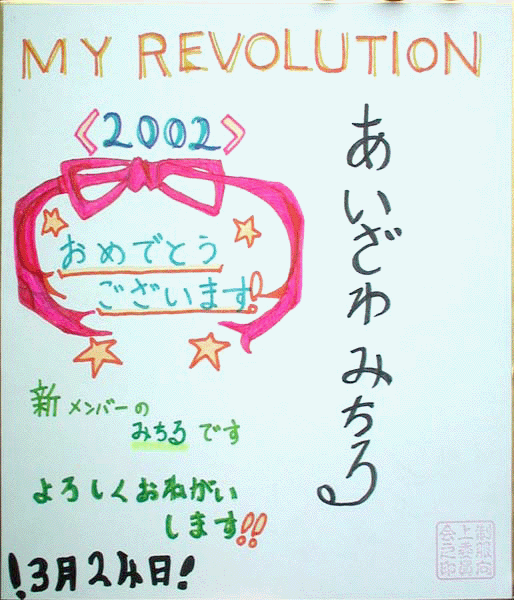 MY REVOLUTION
〈2002〉
おめでとう
ございます!
あいざわみちる
新メンバーの
みちるです
よろしくおねがい
します!!
!3月24日!
制服向
上委員
会之印